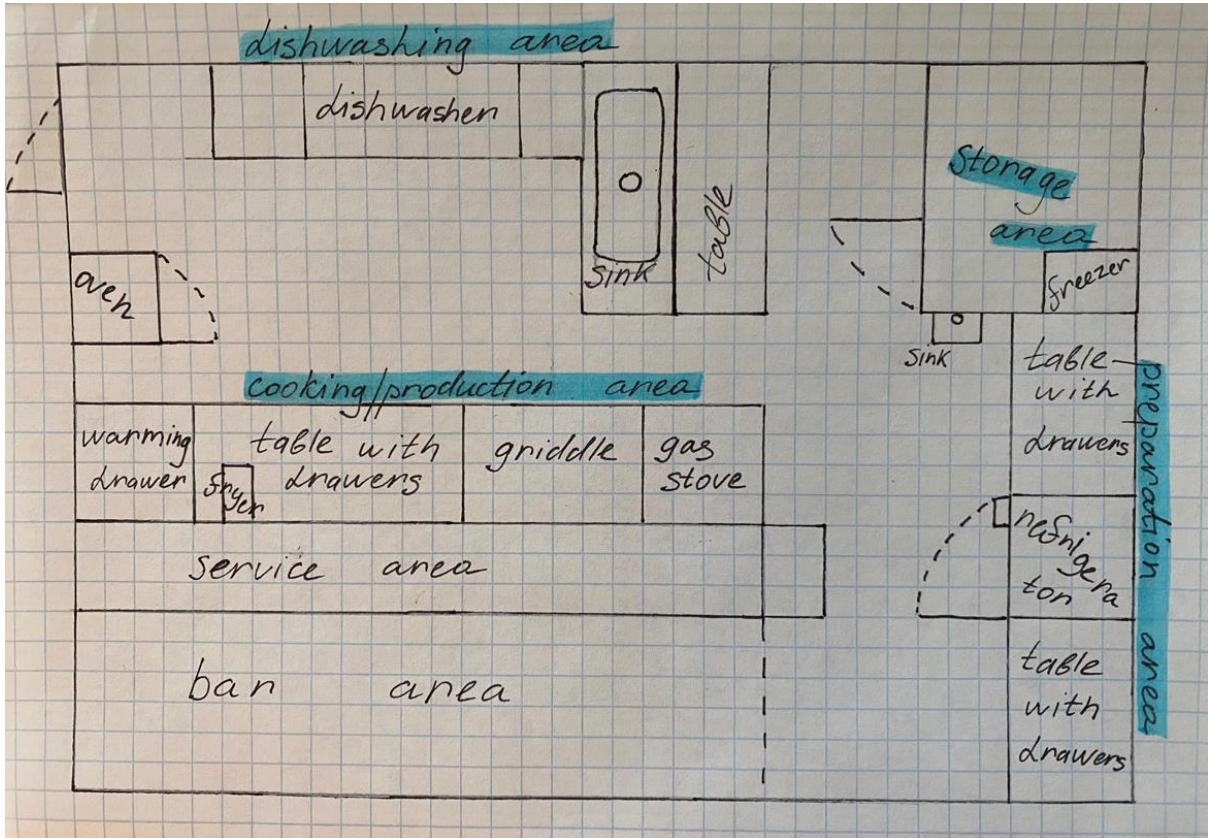 dishwashing area
dishwasher
sink
table
Storage
area
freezer
oven
sink
cooking/production area
warming
drawer
fryer
table with
drawers
griddle
gas
stove
table
with
drawers
preparation area
refrigera
tor
service area
bar area
table
with
drawers